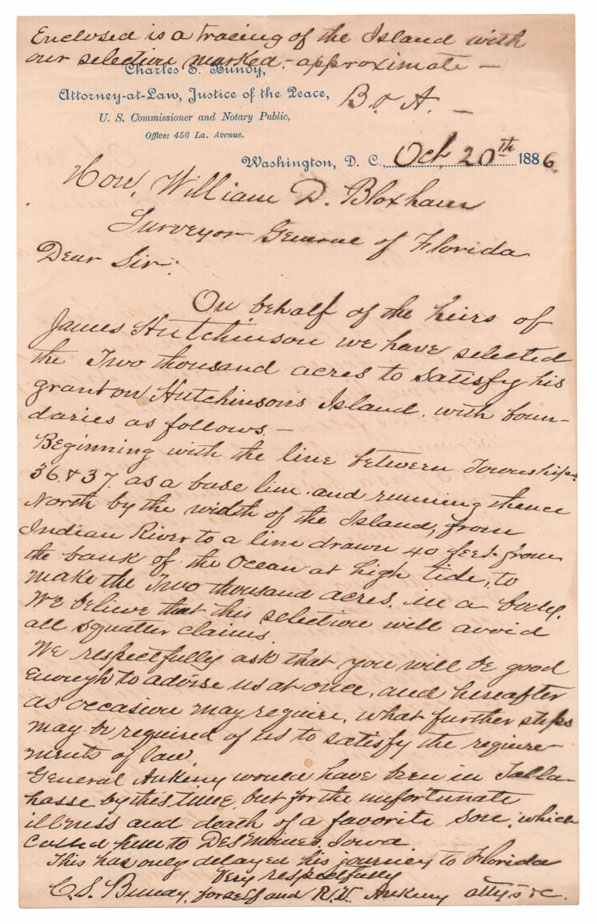 Enclosed is a tracing of the Island with
our selection marked - approximate -
Charles S. Bundy,
Attorney-at-Law, Justice of the Peace,
B. & A. -
U. S. Commissioner and Notary Public,
Office: 456 La. Avenue.
Washington, D. C., Oct. 20th 1886.
Hon. William D. Bloxham
Surveyor General of Florida
Dear Sir:
On behalf of the heirs of
James Hutchinson we have selected
the Two thousand acres to satisfy his
grant on Hutchinson's Island. with boun-
daries as follows. -
Beginning with the line between Townships
36. & 37. as a base line. and running thence
North by the width of the Island, from
Indian River to a line drawn 40 feet from
the bank of the Ocean at high tide, to
make the Two thousand acres. in a body.
We believe that this selection will avoid
all squatter claims.
We respectfully ask that you will be good
enough to advise us at once, and hereafter
as occasion may require, what further steps
may be required of us to satisfy the require-
ments of law
General Ankeny would have been in Talla-
hasse by this time, but for the unfortunate
illness and death of a favorite son, which
called him to DesMoines, Iowa.
This has only delayed his journey to Florida
Very respectfully
C. S. Bundy, for self and R. V. Ankeny attys &c.